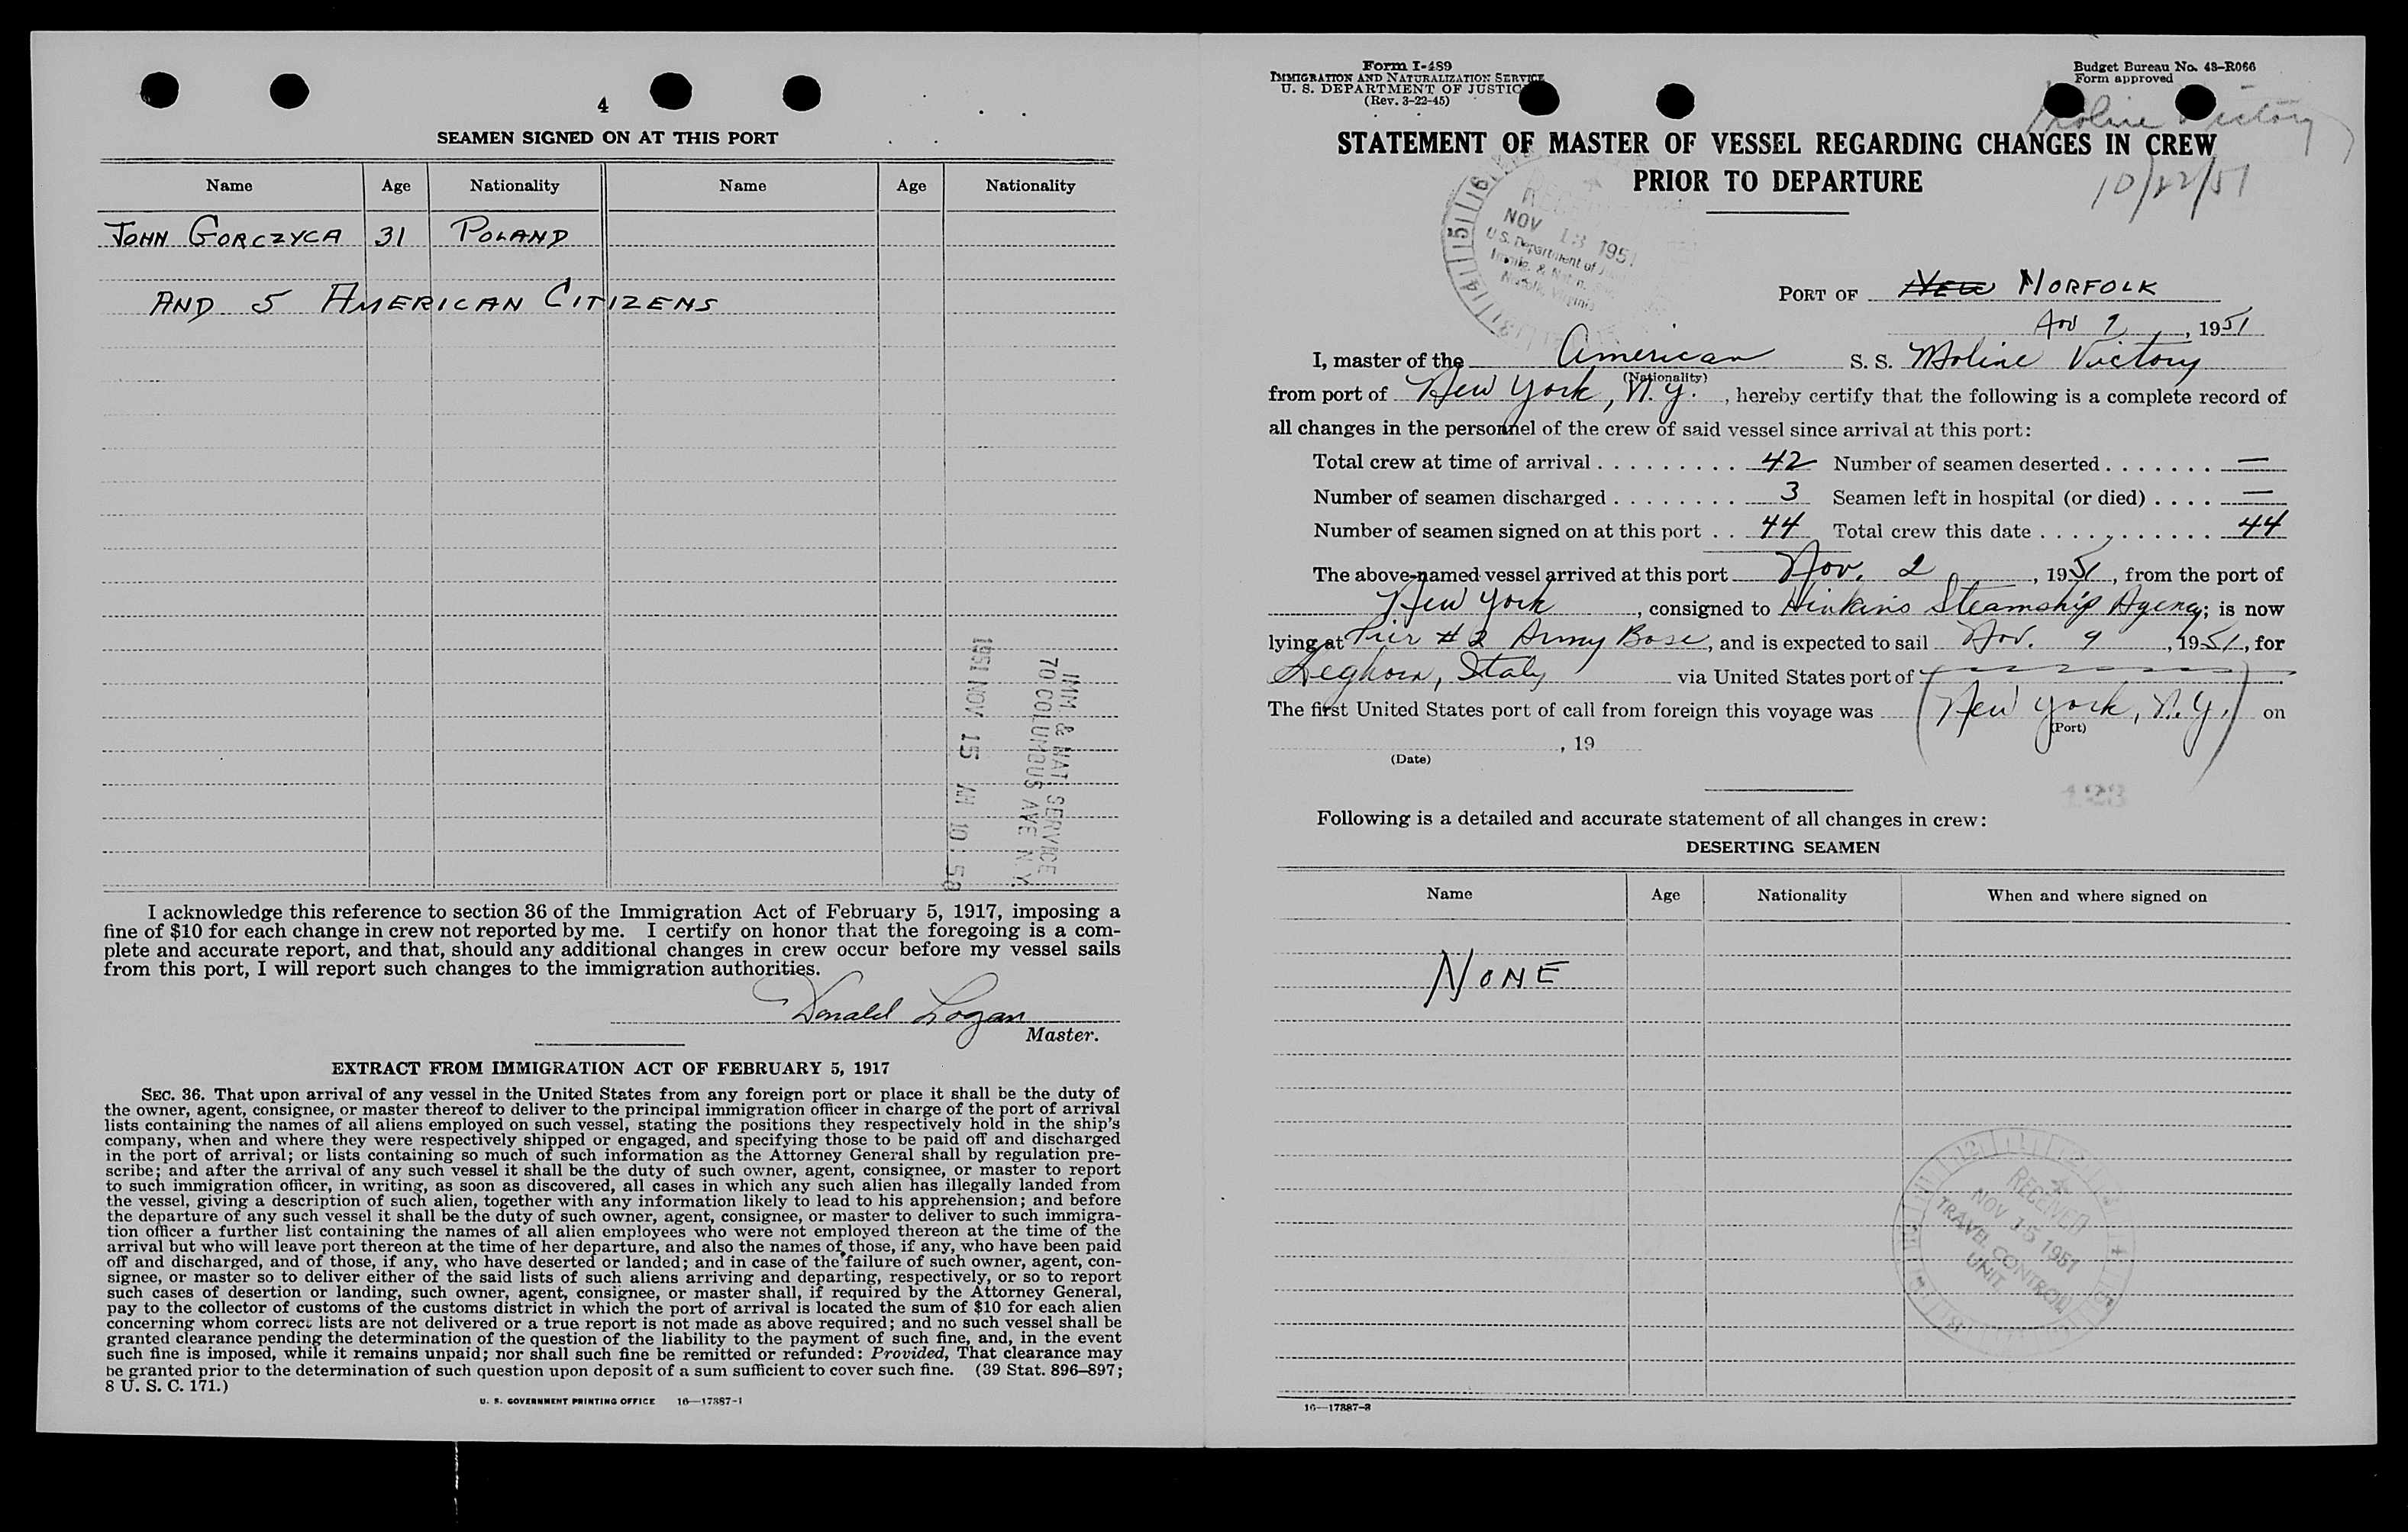 4
SEAMEN SIGNED ON AT THIS PORT
Name Age Nationality Name Age Nationality
JOHN GORCZYCA 31 POLAND
AND 5 AMERICAN CITIZENS
IMM. & NAT. SERVICE
70 COLUMBUS AVE N.Y.
1951 NOV 15 AM 10:58
I acknowledge this reference to section 36 of the Immigration Act of February 5, 1917, imposing a
fine of $10 for each change in crew not reported by me. I certify on honor that the foregoing is a com-
plete and accurate report, and that, should any additional changes in crew occur before my vessel sails
from this port, I will report such changes to the immigration authorities.
Donald Logan
Master.
EXTRACT FROM IMMIGRATION ACT OF FEBRUARY 5, 1917
SEC. 36. That upon arrival of any vessel in the United States from any foreign port or place it shall be the duty of
the owner, agent, consignee, or master thereof to deliver to the principal immigration officer in charge of the port of arrival
lists containing the names of all aliens employed on such vessel, stating the positions they respectively hold in the ship's
company, when and where they were respectively shipped or engaged, and specifying those to be paid off and discharged
in the port of arrival; or lists containing so much of such information as the Attorney General shall by regulation pre-
scribe; and after the arrival of any such vessel it shall be the duty of such owner, agent, consignee, or master to report
to such immigration officer, in writing, as soon as discovered, all cases in which any such alien has illegally landed from
the vessel, giving a description of such alien, together with any information likely to lead to his apprehension; and before
the departure of any such vessel it shall be the duty of such owner, agent, consignee, or master to deliver to such immigra-
tion officer a further list containing the names of all alien employees who were not employed thereon at the time of the
arrival but who will leave port thereon at the time of her departure, and also the names of those, if any, who have been paid
off and discharged, and of those, if any, who have deserted or landed; and in case of the failure of such owner, agent, con-
signee, or master so to deliver either of the said lists of such aliens arriving and departing, respectively, or so to report
such cases of desertion or landing, such owner, agent, consignee, or master shall, if required by the Attorney General,
pay to the collector of customs of the customs district in which the port of arrival is located the sum of $10 for each alien
concerning whom correct lists are not delivered or a true report is not made as above required; and no such vessel shall be
granted clearance pending the determination of the question of the liability to the payment of such fine, and, in the event
such fine is imposed, while it remains unpaid; nor shall such fine be remitted or refunded: Provided, That clearance may
be granted prior to the determination of such question upon deposit of a sum sufficient to cover such fine. (39 Stat. 896–897;
8 U. S. C. 171.)
U. S. GOVERNMENT PRINTING OFFICE 16—17387-1
Form I-489
IMMIGRATION AND NATURALIZATION SERVICE
U. S. DEPARTMENT OF JUSTIC
(Rev. 3-22-45)
Budget Bureau No. 43–R066
Form approved
Moline Victory
10/22/51
STATEMENT OF MASTER OF VESSEL REGARDING CHANGES IN CREW
PRIOR TO DEPARTURE
NOV 13 1951
U.S. Department of
Immig. & Nat'n.
Norfolk, Virginia
PORT OF New NORFOLK
Nov 9, 1951
I, master of the American S. S. Moline Victory
(Nationality)
from port of New York, N.Y., hereby certify that the following is a complete record of
all changes in the personnel of the crew of said vessel since arrival at this port:
Total crew at time of arrival . . . . . . . . . 42 Number of seamen deserted . . . . . . . —
Number of seamen discharged . . . . . . . . 3 Seamen left in hospital (or died) . . . . —
Number of seamen signed on at this port . . 44 Total crew this date . . . . . . . . . . . 44
The above-named vessel arrived at this port Nov. 2, 1951, from the port of
New York, consigned to Hinkins Steamship Agency; is now
lying at Pier #2 Army Base, and is expected to sail Nov. 9, 1951, for
Leghorn, Italy via United States port of
The first United States port of call from foreign this voyage was (New York, N.Y.) on
(Port)
, 19
(Date)
123
Following is a detailed and accurate statement of all changes in crew:
DESERTING SEAMEN
Name Age Nationality When and where signed on
NONE
RECEIVED
NOV 15 1951
TRAVEL CONTROL
UNIT
16—17387-3